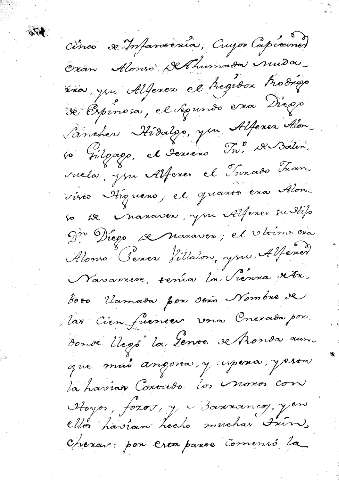 cinco de Infanteria, Cuyos Capitanes
eran Alonso de Ahumada Muda-
rra, y su Alferes el Regidor Rodrigo
de Espinosa, el segundo era Diego
Sanches Hidalgo, y su Alferes Alon-
so Gilgago, el tercero Jnº de Balen-
suela, y su Alferes el Jurado Fran-
sisco Higuero; el quarto era Alon-
so de Maraver, y su Alferes su Hijo
Dn Diego de Maraver; el ultimo era
Alonso Peres Villalon, y su Alferes
Navarrete, tenia la Sierra de Ar-
boto llamada por otro Nombre de
las Cien fuentes una Entrada por
donde llegó la Gente de Ronda aun-
que mui angosta, y aspera, y esta
la havian Cortado los Moros con
Hoyos, fozos, y Barrancos, y en
ellos havian hecho muchas Trin-
cheras: por esta parte Comensó la